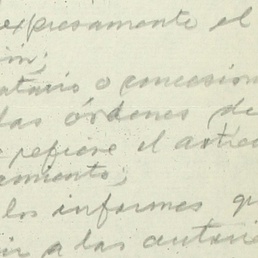 expresamente el
ón;
atario o concesion
las órdenes de
refiere el artíc
amiento;
los informes q
ir a las autori